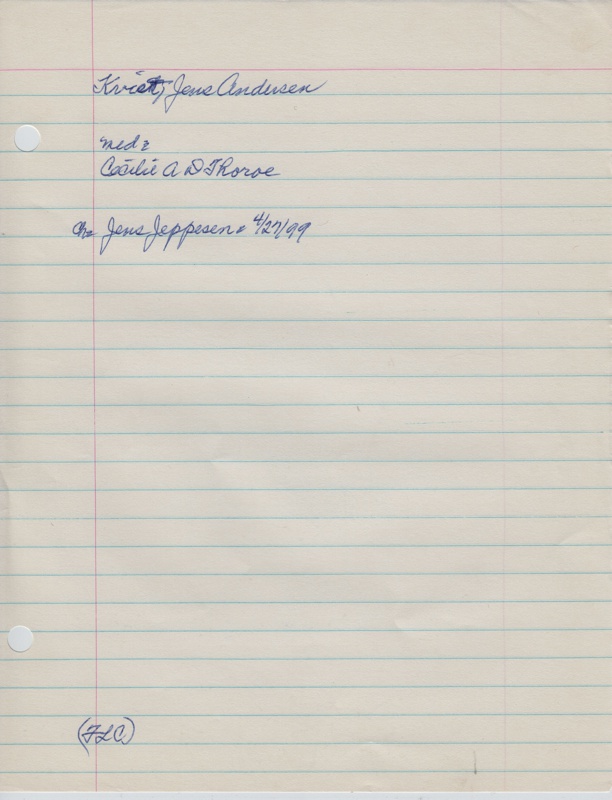 Jens Andersen
med:
Cecilie A D Thoroe
Ch: Jens Jeppesen * 4/27/99
(FLC)